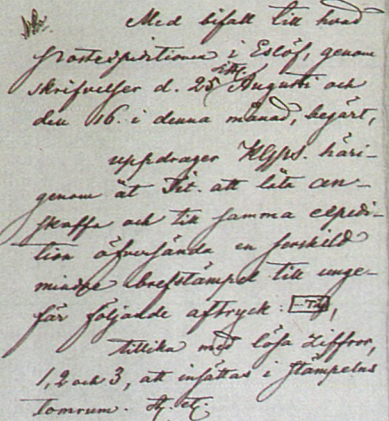 Med bifall till hvad
postexpeditionen i Eslöf, genom
skrifvelser d. 25 sistl. Augusti och
den 16. i denna månad, begärt,
uppdrager Kgl. häri-
genom åt Tit. att låta an-
skaffa och till samma expedi-
tion öfversända en särskild
mindre brefstämpel till unge-
fär följande aftryck:
tillika med lösa ziffror,
1, 2 och 3, att insättas i stämpelns
tomrum. etc. etc.